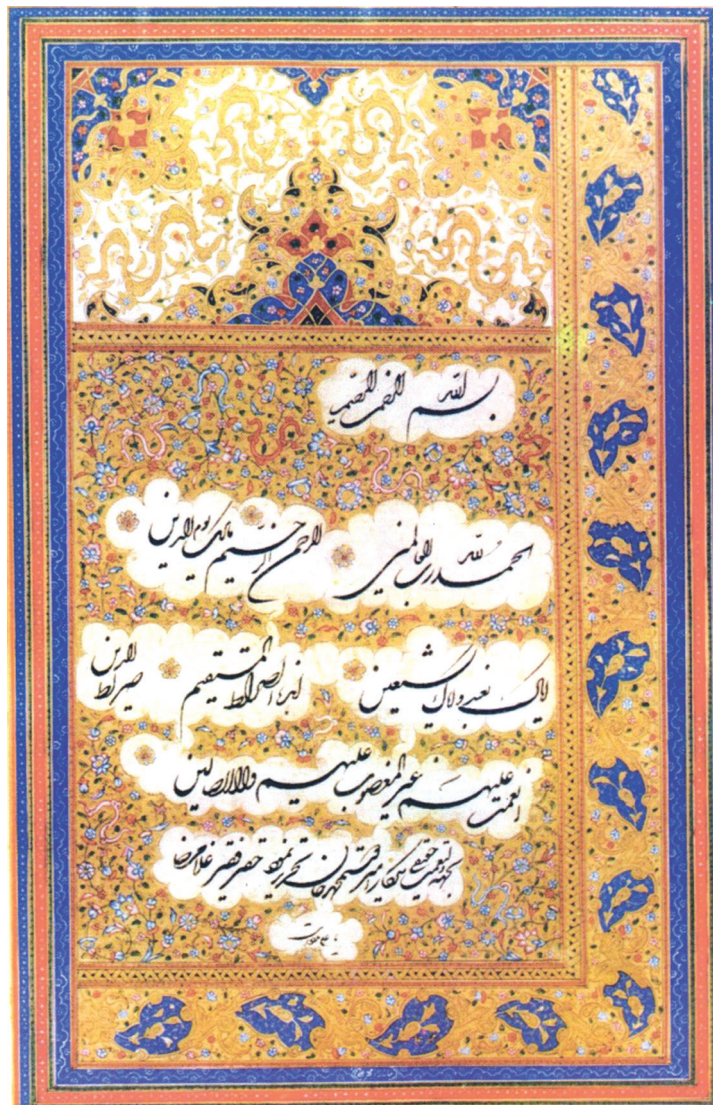 بسم الله الرحمن الرحیم
الحمد لله رب العالمین الرحمن الرحیم مالک یوم الدین
ایاک نعبد و ایاک نستعین اهدنا الصراط المستقیم صراط الذین
انعمت علیهم غیر المغضوب علیهم ولا الضالین
حقیر فقیر غلامرضا
یا علی مدد